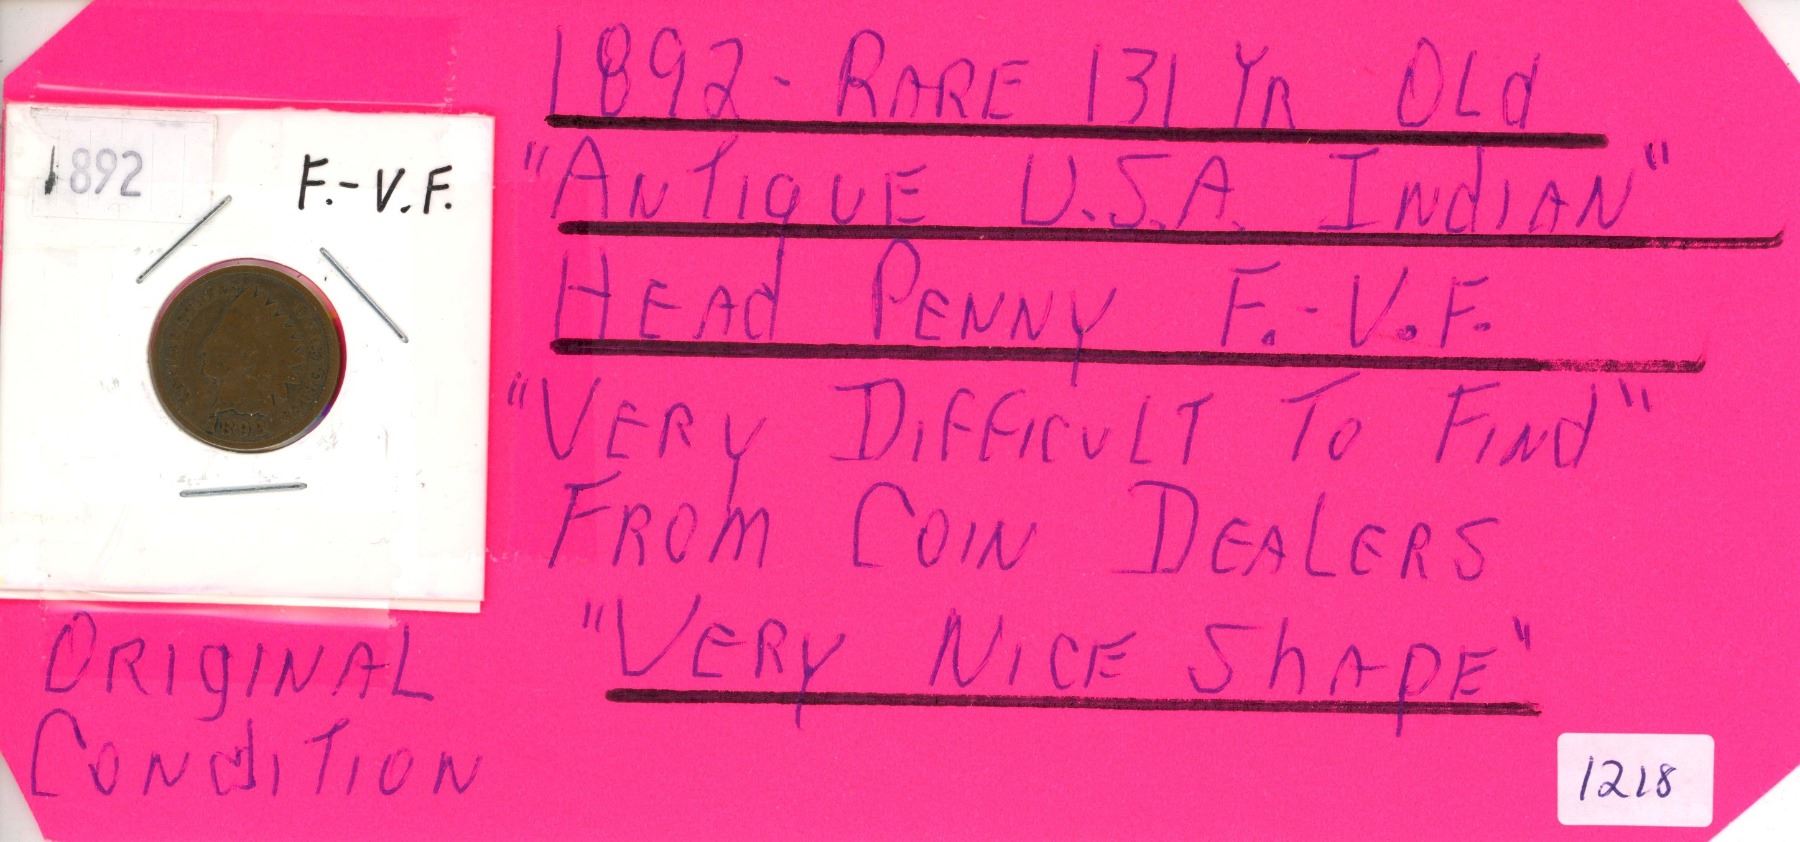 1892 - RARE 131 YR OLd
"ANTIQUE U.S.A. INdIAN"
HEAd PENNY F.-V.F.
"VERY DIFFICULT TO FINd"
FROM COIN DEALERS
"VERY NICE ShAPE"
1892 F.-V.F.
1892
ORIGINAL
CONdITION
1218